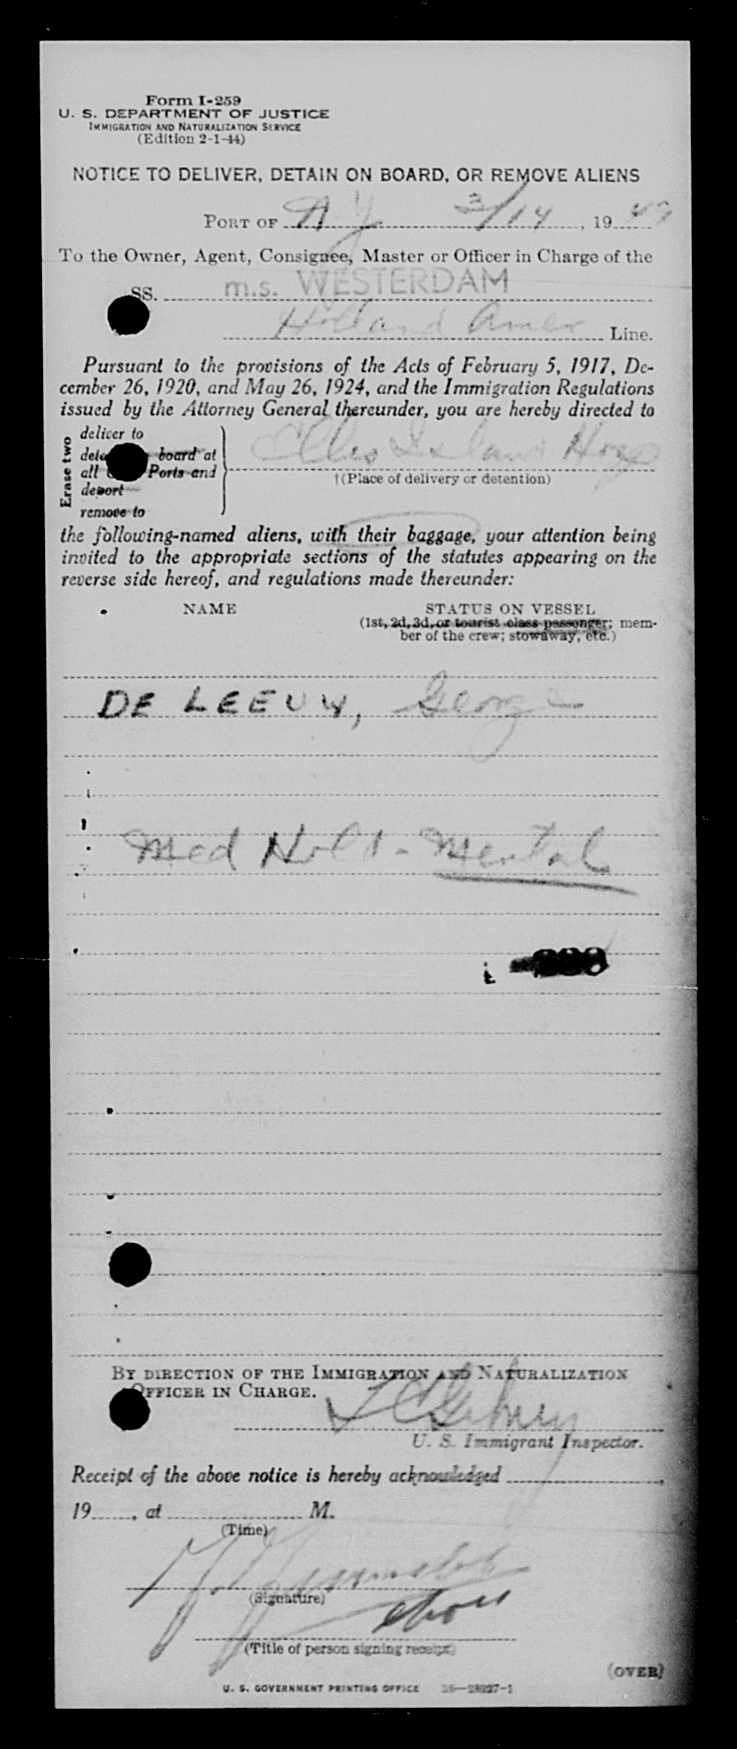 Form I-259
U. S. DEPARTMENT OF JUSTICE
IMMIGRATION AND NATURALIZATION SERVICE
(Edition 2-1-44)
NOTICE TO DELIVER, DETAIN ON BOARD, OR REMOVE ALIENS
PORT OF N Y 3/14, 19
To the Owner, Agent, Consignee, Master or Officer in Charge of the
SS. m.s. WESTERDAM
Holland Amer Line.
Pursuant to the provisions of the Acts of February 5, 1917, De-
cember 26, 1920, and May 26, 1924, and the Immigration Regulations
issued by the Attorney General thereunder, you are hereby directed to
Erase two
deliver to
board at
all Ports and
deport
remove to
Ellis Island Hosp
†(Place of delivery or detention)
the following-named aliens, with their baggage, your attention being
invited to the appropriate sections of the statutes appearing on the
reverse side hereof, and regulations made thereunder:
NAME STATUS ON VESSEL
(1st, 2d, 3d, or tourist class passenger; mem-
ber of the crew; stowaway, etc.)
DE LEEUW, George
Med Hold - Mental
BY DIRECTION OF THE IMMIGRATION AND NATURALIZATION
OFFICER IN CHARGE.
U. S. Immigrant Inspector.
Receipt of the above notice is hereby acknowledged
19, at M.
(Time)
(Signature)
(Title of person signing receipt)
(OVER)
U. S. GOVERNMENT PRINTING OFFICE 16—28227-1